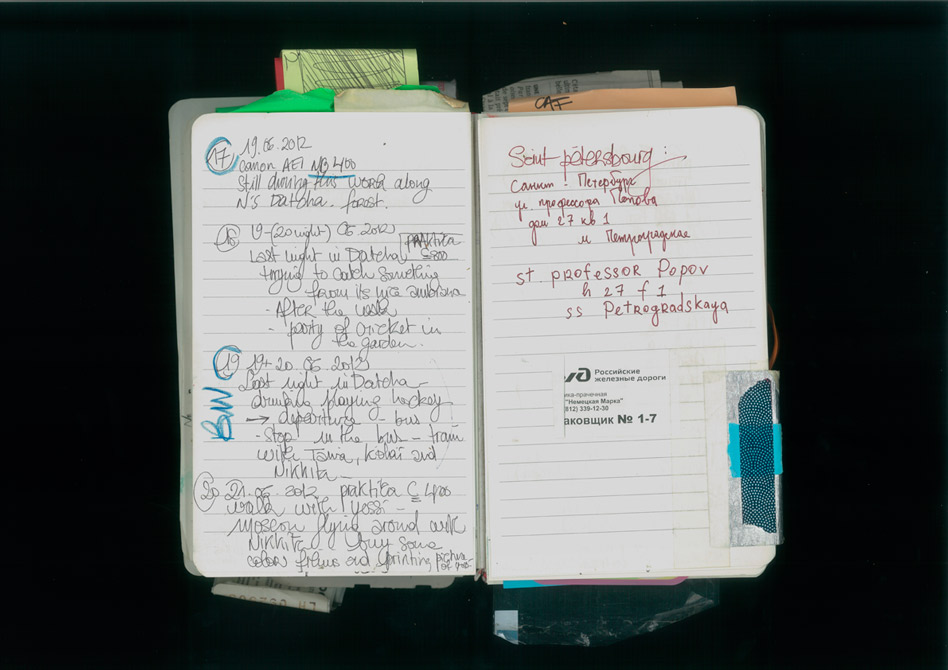 17
19.06.2012
Canon AE1 NB 400
Still driving this work along
N's Datcha. forest.
19-(20 night) 06 2012
PRAKTICA
C 800
Last night in Datcha
trying to catch something
from its nice
- After the
- party of cricket in
the garden.
19
19+20.06.2012
B/W
Last night in Datcha
drinking playing hockey
→ departure bus
- Stop in the bus - train
with Tania, Kolaï and
Nikhita
20
21.06 2012 praktica C 400
walk with Yossi -
Moscow flying around with
Nikhita buy some
color films and printing picture
CAF
Saint pétersbourg :
Санкт - Петербург
ул. профессора Попова
дом 27 кв 1
м Петроградская
st. professor Popov
h 27 f 1
ss Petrogradskaya
Российские
железные дороги
ика-прачечная
"Немецкая Марка"
(812) 339-12-30
аковщик № 1-7